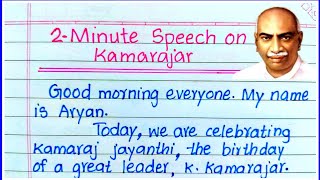 2-Minute Speech on
Kamarajar
Good morning everyone. My name
is Aryan.
Today, we are celebrating
Kamaraj Jayanthi, the birthday
of a great leader, K. Kamarajar.